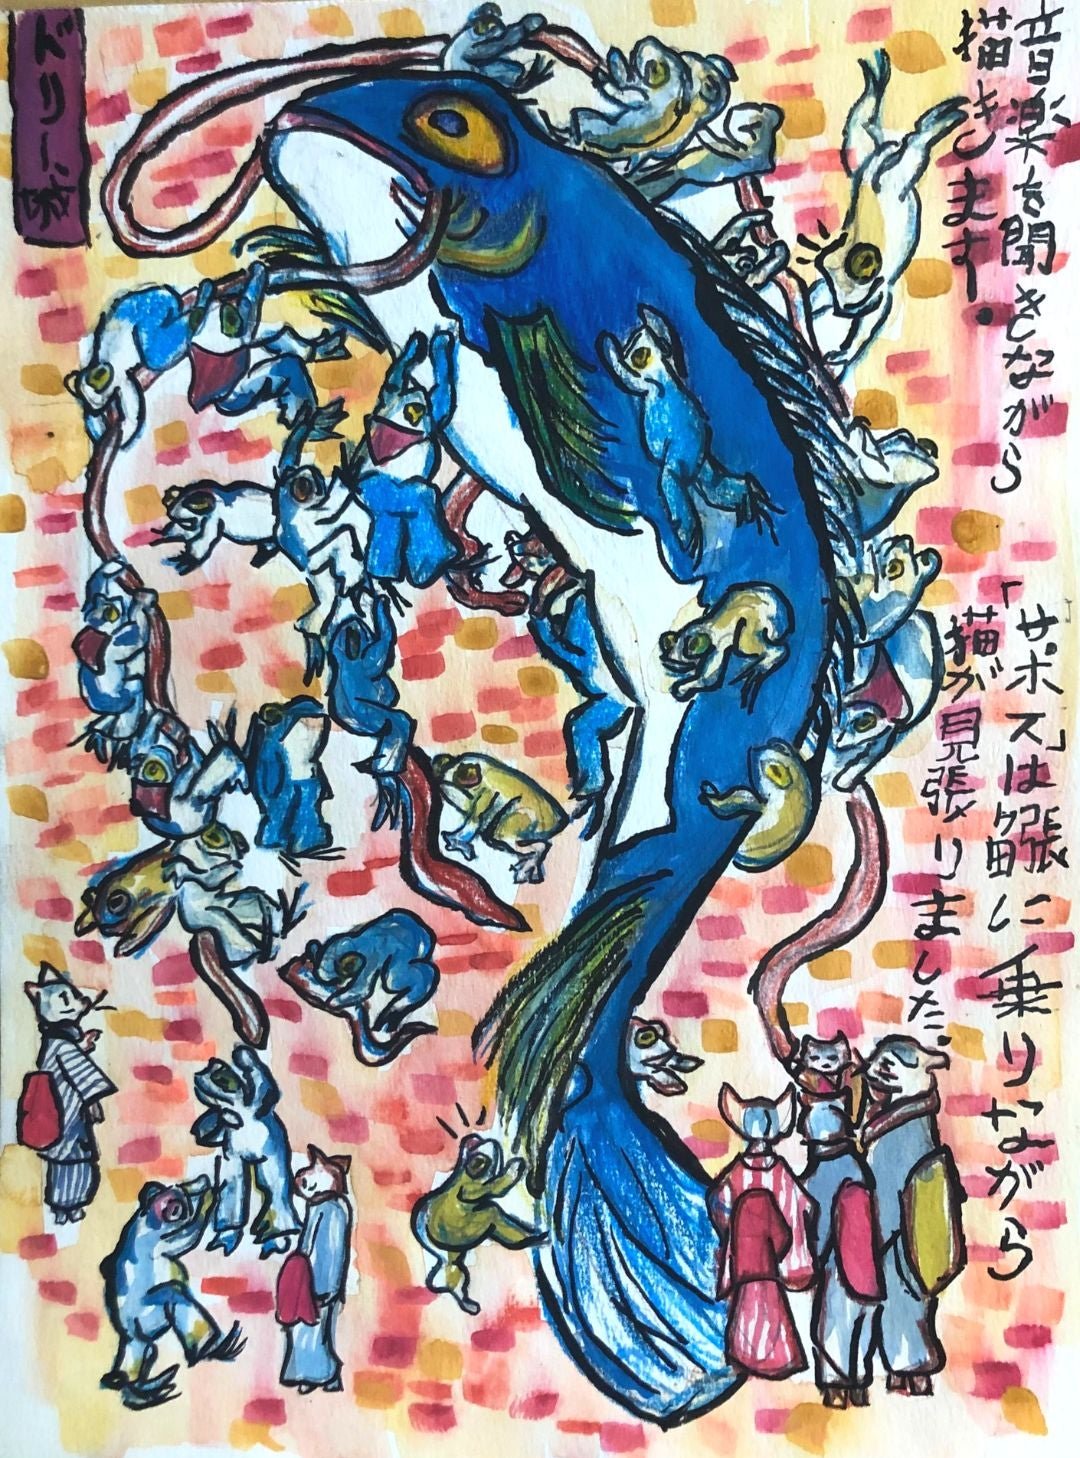 音楽を聞きながら
描きます.
「サポス」は に乗りながら
猫が見張りました。
ドリー、